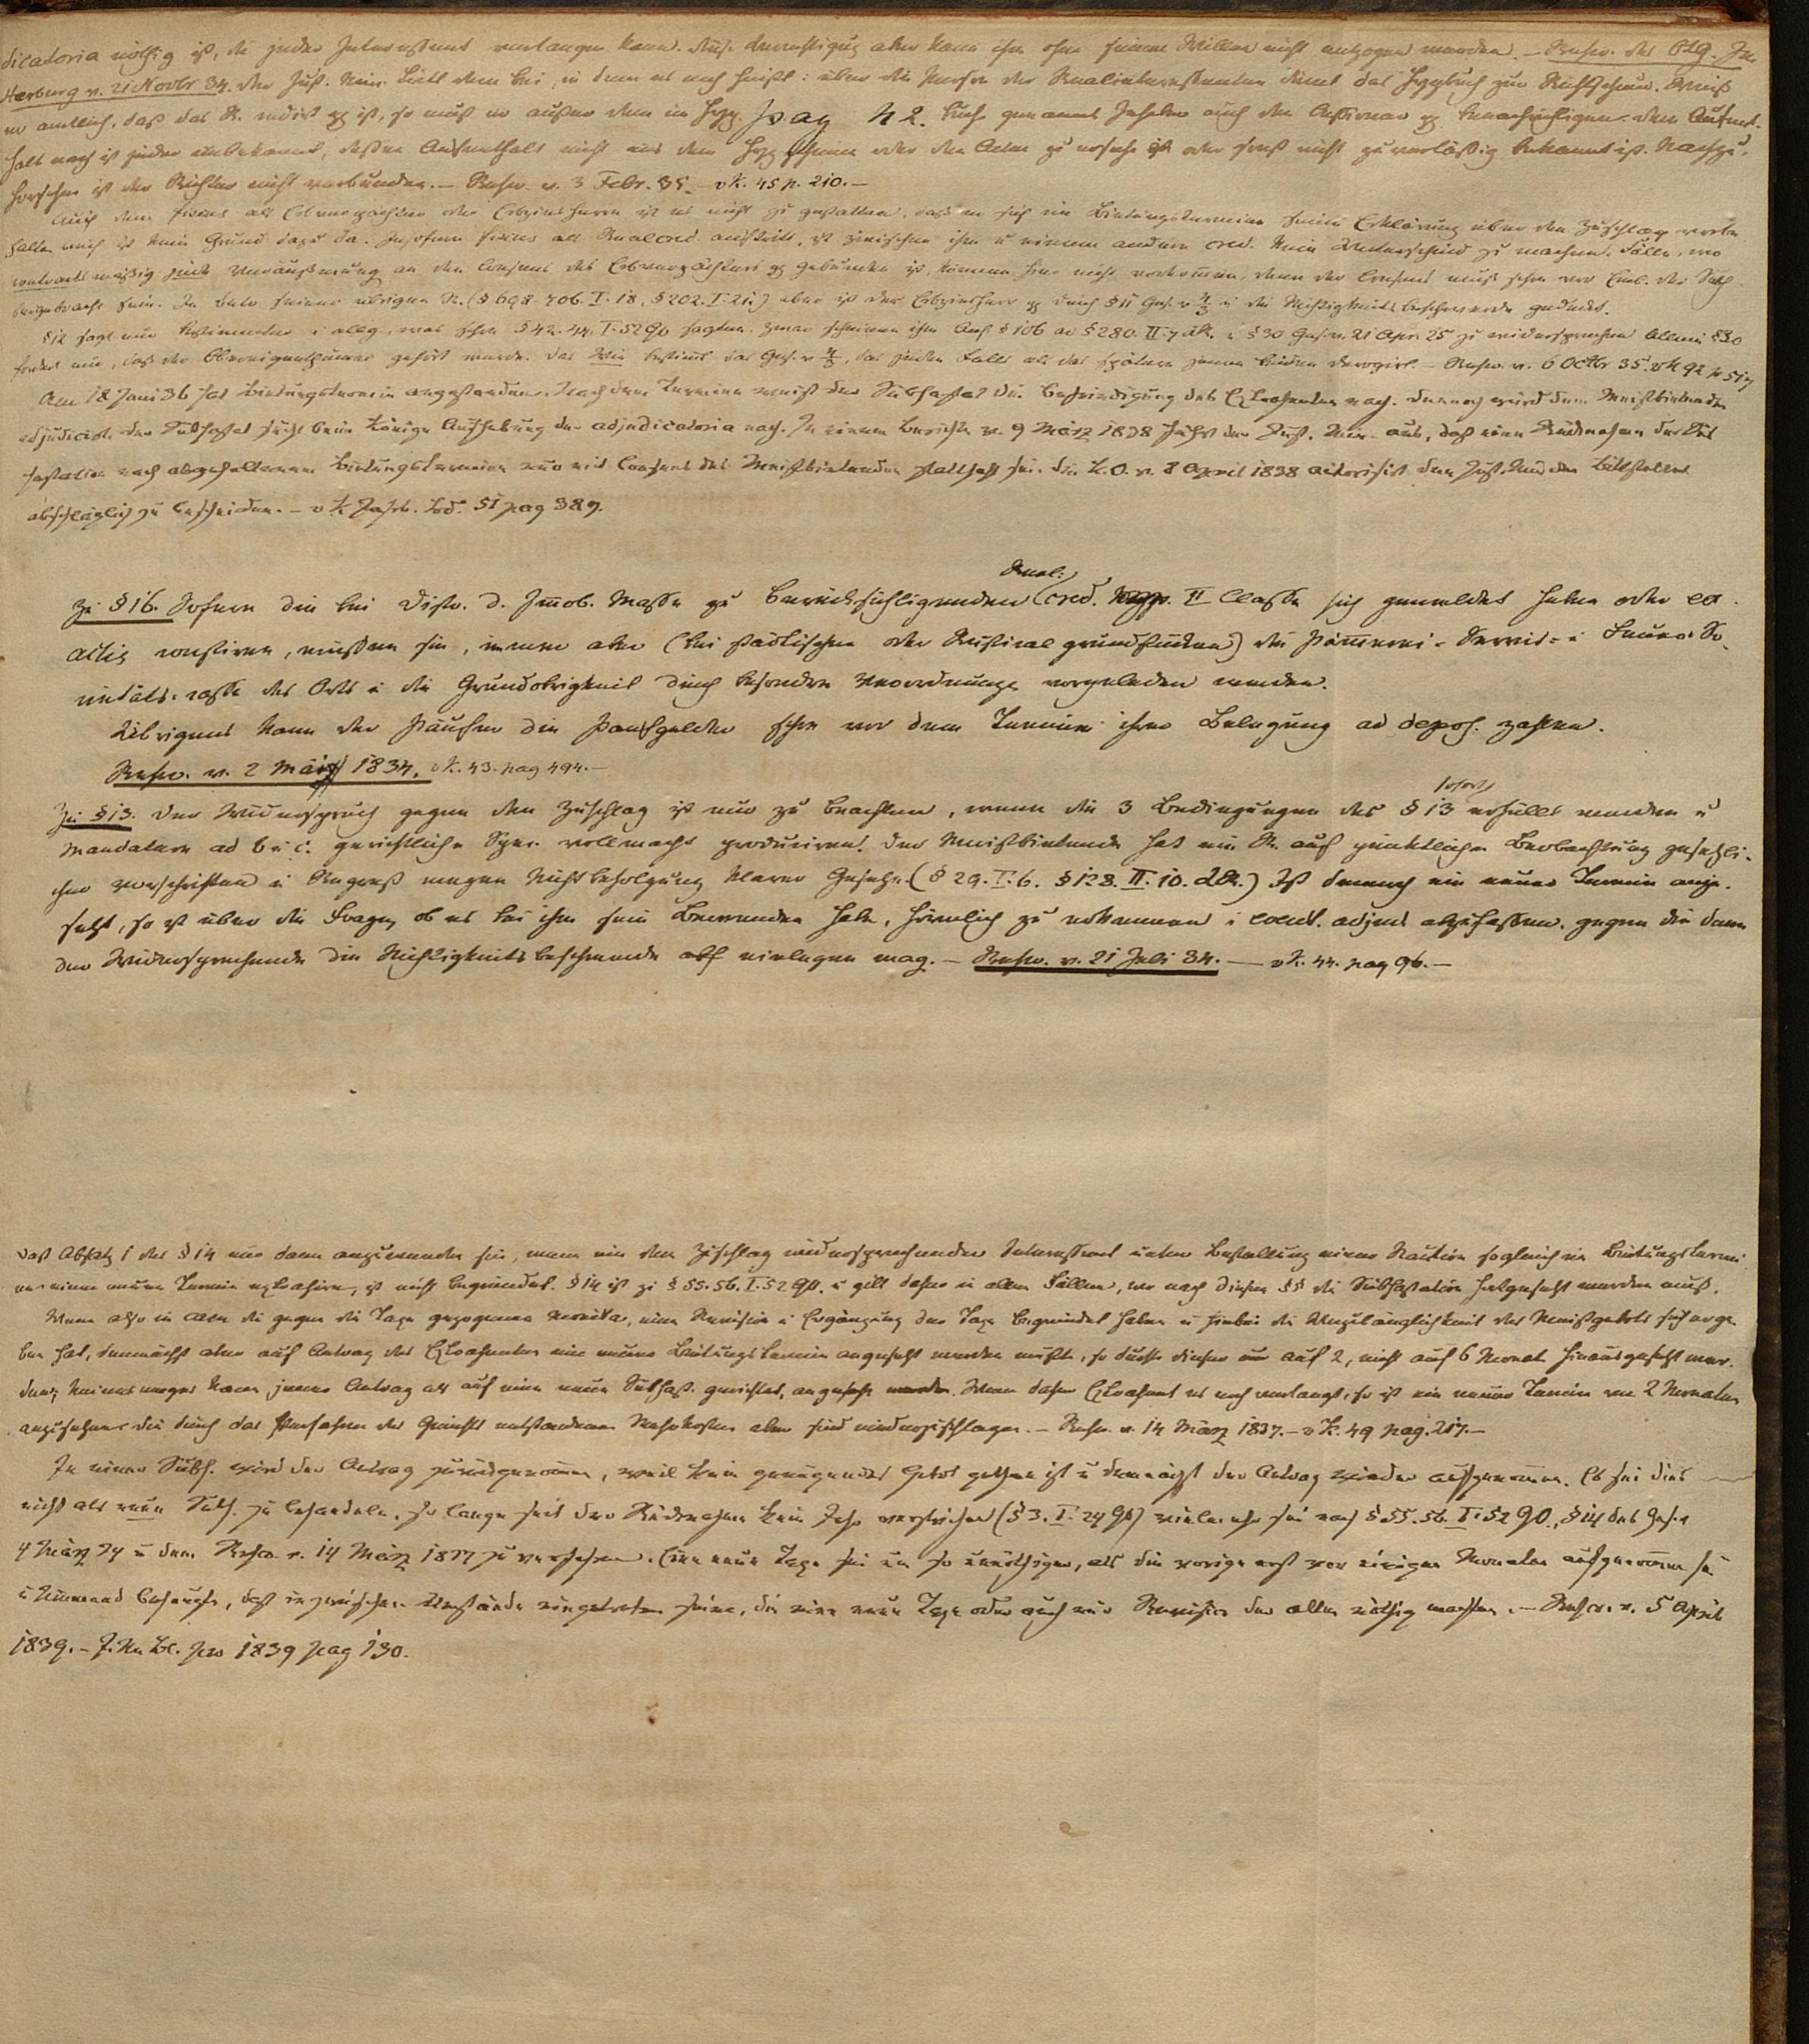 dicatoria nöthig ist, die jeder Interessent verlangen kann. Diese Berechtigung aber kann ihm ohne seinen Willen nicht entzogen werden. — Rescr. des OLG. In
sterburg v. 21 Novbr 34. der Just. Min. tritt dem bei, in dem es noch heißt: über die Person der Realinteressenten dient das Hypbuch zur Richtschnur. Weiß
er amtlich, daß das R. cedirt pp ist, so muß er außer dem im Hyp. pag 42. Buch genannten Inhaber auch den Cessionar pp benachrichtigen. dem Aufent-
halt nach ist jeder unbekannt, dessen Aufenthalt nicht aus dem Hypscheine oder den Acten zu ersehen ist oder sonst nicht zuverläßig bekannt ist. Nachzu-
forschen ist der Richter nicht verbunden. — Rescr. v. 3 Febr. 35. — v K. 45 p. 210. —
Auch dem Fiscus als Erbverpächter oder Erbzinsherrn ist es nicht zu gestatten, daß er sich im Bietungstermine seine Erklärung über den Zuschlag vorbe
halte auch ist kein Grund dazu da. Insofern Fiscus als Realcred. auftritt, ist zwischen ihm u einem andern cred. kein Unterschied zu machen. Fälle, wo
contractmäßig jede Veräußerung an den Consens des Erbverpächters pp gebunden ist, können hier nicht vorkommen, denn der Consens muß schon vor Einl. der Subh.
beigebracht sein. In betr. seiner übrigen R. (§ 698-706. I. 18, § 202. I. 21) aber ist der Erbzinsherr pp durch § 11 Ges. v 4/3 u die Nichtigkeitsbeschwerde gedeckt.
§ 12 sagt nur bestimmter u allg., was schon § 42. 44. I. 52 GO sagten. Zwar scheinen ihm Anh. § 106 ad § 280. II. 7 LR. u § 30 Ges. v. 21 Apr. 25 zu widersprechen Allein § 30
fordert nur, daß der Obereigenthümer gehört werde. Das Wie bestimt das Ges. v 4/3, das jeden Falls als das spätere jenen beiden derogirt. — Rescr. v. 6 Octbr 35. v K 42 p 517
Am 18 Juni 36 hat Bietungstermin angestanden. Nach dem Termine weist der Subhastat die Befriedigung des Extrahenten nach. Dennoch wird dem Meistbietenden
adjudicirt. der Subhastat sucht beim Könige Aufhebung der adjudicatoria nach. In einem Berichte v. 9 März 1838 führt der Just. Min. aus, daß eine Rücknahme der Sub
hastation nach abgehaltenem Bietungstermine nur mit Consens des Meistbietenden statthaft sei. die K. O. v. 8 April 1838 autorisirt den Just. Min. den Bittsteller
abschläglich zu bescheiden. — v K Jahrb. Bd. 51 pag 389.
Zu § 16. Sofern die bei Distr. d. Immob. Masse zu berücksichtigenden Real: cred. II Classe sich gemeldet haben oder ex
actis constiren, müssen sie, immer aber (bei städtischen oder Rustical grundstücken) die Kämmerei- Servis- u Feuer-So
cietäts-casse des Orts u die Grundobrigkeit durch besondere Verordnungen vorgeladen werden.
Uebrigens kann der Käufer die Kaufgelder schon vor dem Termine ihrer Belegung ad depos. zahlen.
Rescr. v. 2 Mai 1834. v K. 43. pag 494. —
Zu § 13. Der Widerspruch gegen den Zuschlag ist nur zu beachten, wenn die 3 Bedingungen des § 13 sofort erfüllt werden u
Mandatare ad b u c. gerichtliche Spec. vollmacht produciren. Der Meistbietende hat ein R. auf pünktliche Beobachtung gesetzli-
cher Vorschriften u Regreß wegen Nichtbefolgung klarer Gesetze. (§ 29. I. 6. § 128. II. 10. LR.) Ist dennoch ein neuer Termin ange-
setzt, so ist über die Frage, ob es bei ihm sein Bewenden habe, förmlich zu erkennen u event. adjud abzufassen. gegen die dann
der Widersprechende die Nichtigkeitsbeschwerde einlegen mag. — Rescr. v. 21 Juli 34. — v K. 44. pag 96. —
Daß Absatz 1 des § 14 nur dann anzuwenden sei, wenn ein dem Zuschlag widersprechender Interessent unter Bestellung einer Kaution sogleich im Bietungstermi
ne einen neuen Termin extrahire, ist nicht begründet. § 14 ist zu § 55. 56. I. 52 GO. u gilt daher in allen Fällen, wo nach diesen §§ die Subhastation fortgesetzt werden muß.
Wenn also in casu die gegen die Taxe gezogenen monita, eine Revision u Ergänzung der Taxe begründet haben u hiebei die Unzulänglichkeit des Meistgebots sich erge
ben hat, demnächst aber auf Antrag des Extrahenten ein neuer Bietungstermin angesetzt werden mußte, so durfte dieser nur auf 2, nicht auf 6 Monat hinausgesetzt wer-
den; keineswegs kann jener Antrag als auf eine neue Subhast. gerichtet, angesehn werden. Wenn daher Extrahent es noch verlangt, so ist ein neuer Termin von 2 Monaten
anzusetzen. die durch das Verfahren des Gerichts entstandenen Mehrkosten aber sind niederzuschlagen. — Rescr. v. 14 März 1837. — v K. 49 pag. 217. —
In einer Subh. wird der Antrag zurückgenommen, weil kein genügendes Gebot gethan ist u demnächst der Antrag wieder aufgenommen. Es sei dies
nicht als neue Subh. zu behandeln, so lange seit der Rücknahme kein Jahr verstrichen (§ 3. I. 24 GO) vielmehr sei nach § 55. 56. I. 52 GO., § 14 des Ges. v
4 März 34 u dem Rescr. v. 14 März 1837 zu verfahren. Eine neue Taxe sei um so unnöthiger, als die vorige erst vor einigen Monaten aufgenommen sei
u Niemand behaupte, daß inzwischen Umstände eingetreten seien, die eine neue Taxe oder auch nur Revision der alten nöthig machten. — Rescr. v. 5 April
1839. — J. M. Bl. pro 1839 pag 130.